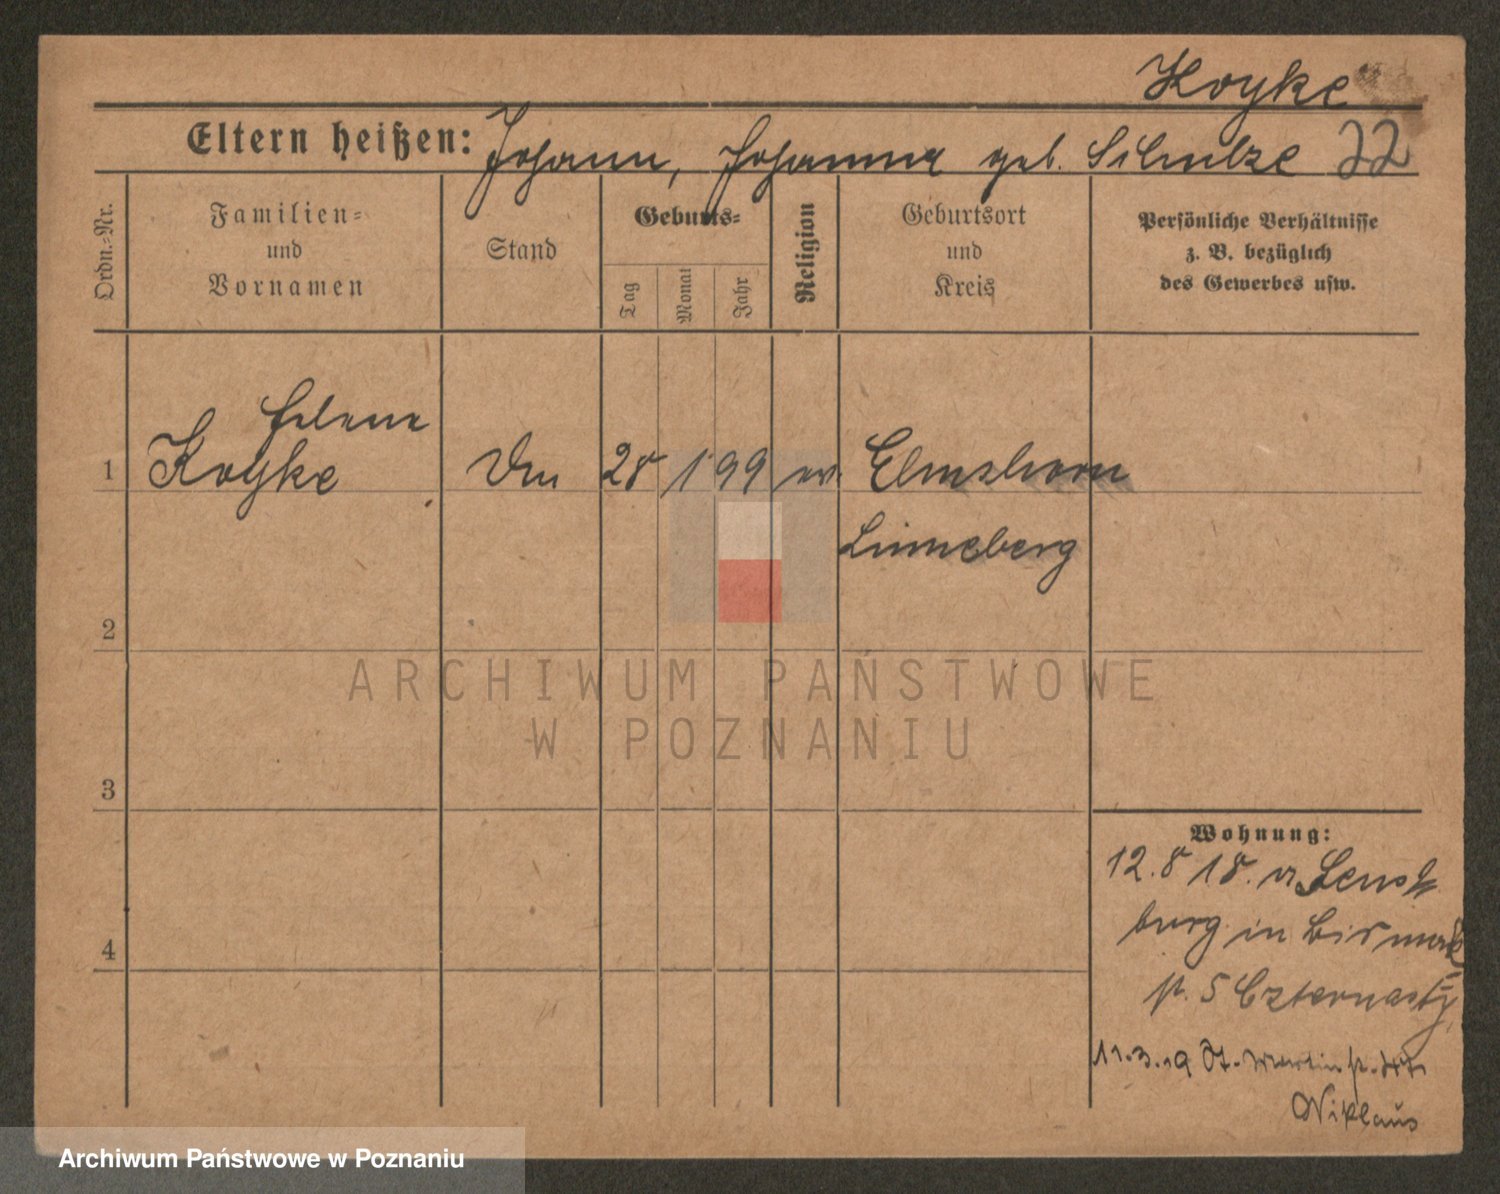 Koyke
Eltern heißen: Johann, Johanna geb. Schulze 22
Ordn.-Nr.
Familien-
und
Vornamen
Stand
Geburts-
Tag
Monat
Jahr
Religion
Geburtsort
und
Kreis
Persönliche Verhältnisse
z. B. bezüglich
des Gewerbes usw.
Helene
1 Koyke 28 1 99 ev. Elmshorn
2
3
4
Wohnung:
12.8 18. v
burg in Bismark
11.3.19 St. Martin
Niklaus
ARCHIWUM PAŃSTWOWE
W POZNANIU
Archiwum Państwowe w Poznaniu